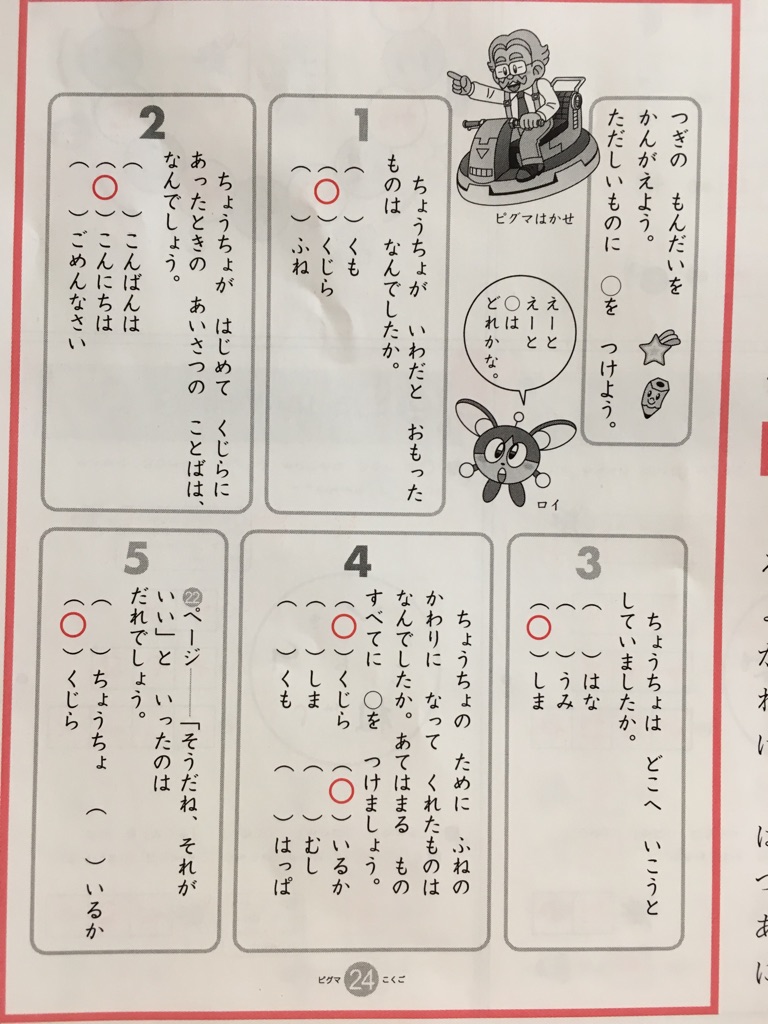 つぎの もんだいを
かんがえよう。
ただしいものに ○を つけよう。
ピグマはかせ
えーと
えーと
○は
どれかな。
ロイ
1
ちょうちょが いわだと おもった
ものは なんでしたか。
( )くも
(○)くじら
( )ふね
2
ちょうちょが はじめて くじらに
あったときの あいさつの ことばは、
なんでしょう。
( )こんばんは
(○)こんにちは
( )ごめんなさい
3
ちょうちょは どこへ いこうと
していましたか。
( )はな
( )うみ
(○)しま
4
ちょうちょの ために ふねの
かわりに なって くれたものは
なんでしたか。あてはまる もの
すべてに ○を つけましょう。
(○)くじら (○)いるか
( )しま ( )むし
( )くも ( )はっぱ
5
22ページ―「そうだね、それが
いい」と いったのは
だれでしょう。
( )ちょうちょ ( )いるか
(○)くじら
ピグマ 24 こくご